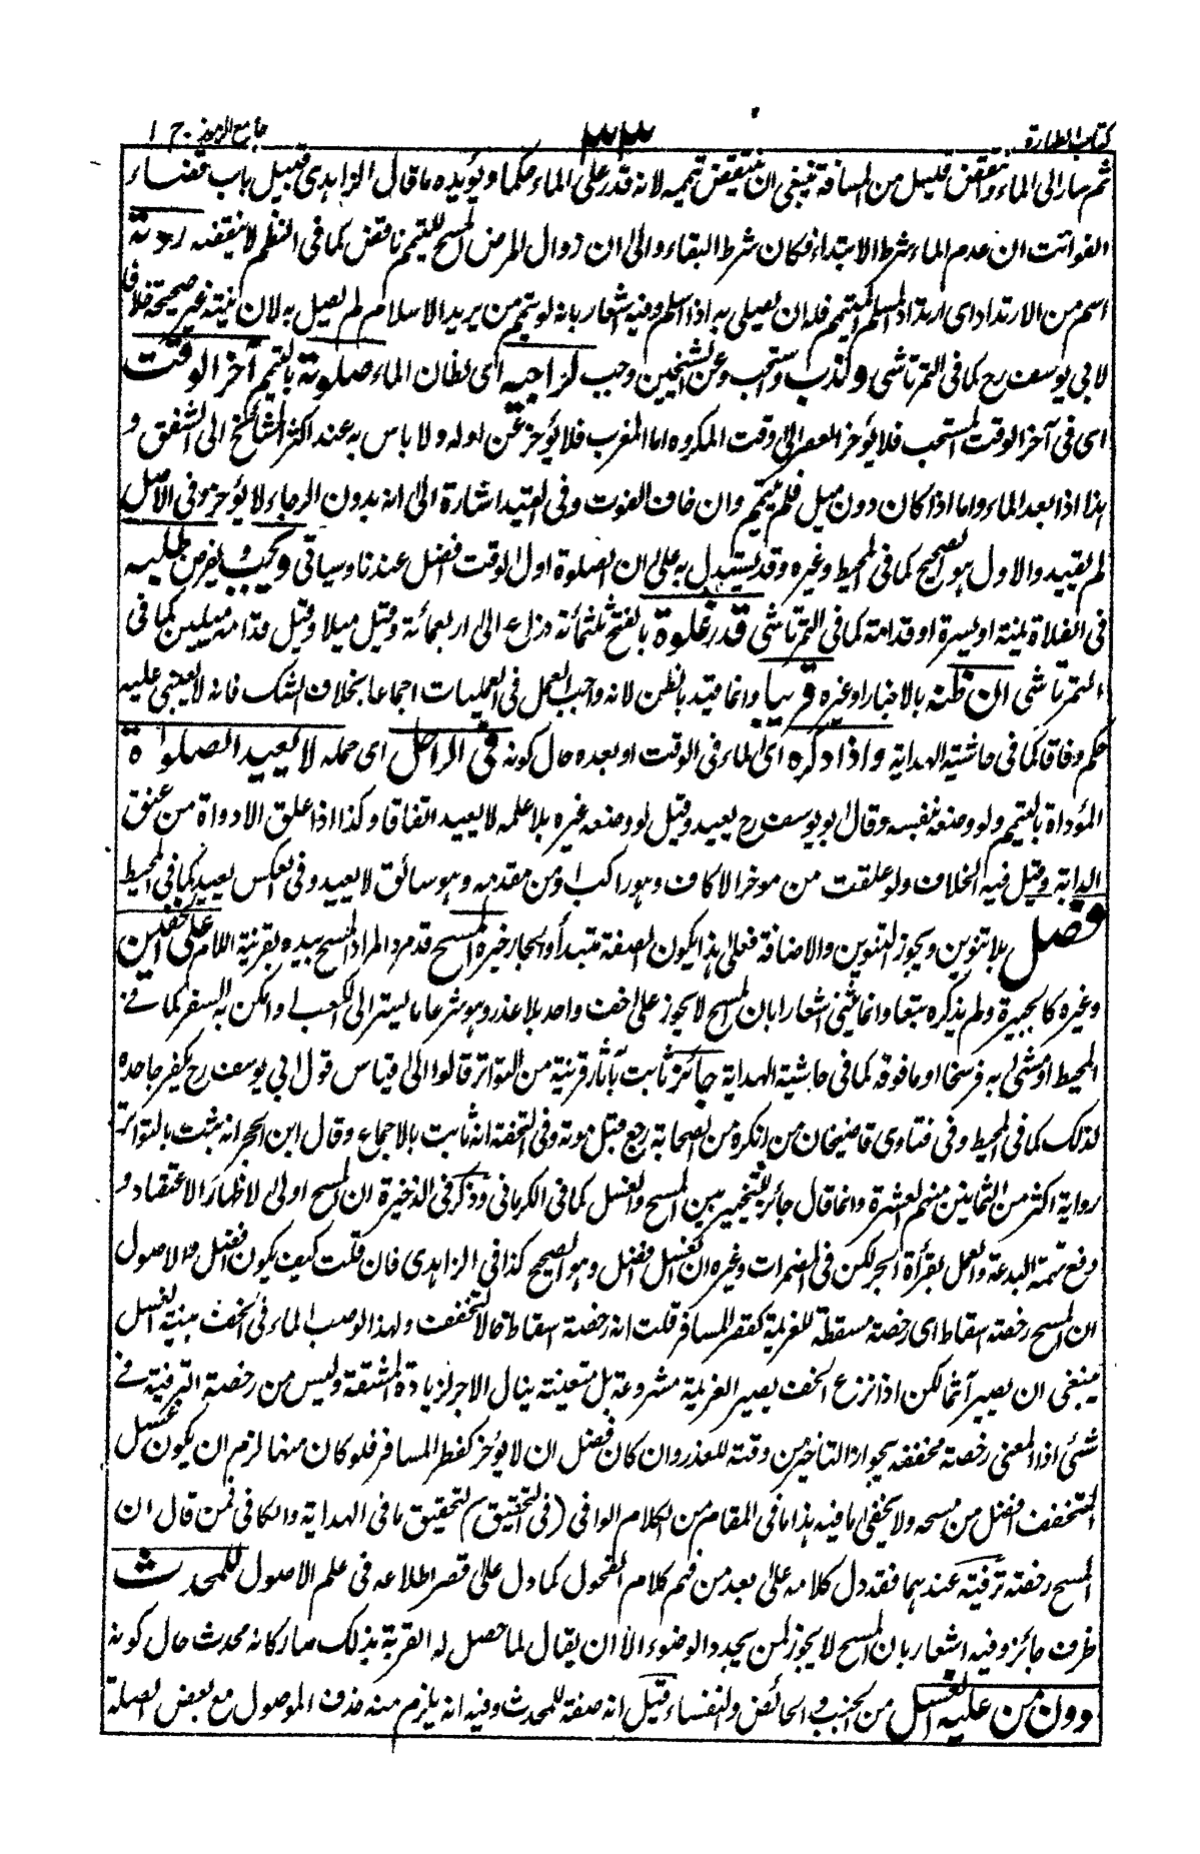 كتاب الطهارة
٣٣
جامع الرموز ج ١
ثم سار الى الماء وانتقض قليل من المسافة ينبغى ان ينتقض تيممه لانه قدر على الماء حكما ويؤيده ما قال الزاهدى قبيل باب قضاء
الفوائت ان عدم الماء شرط الابتداء فكان شرط البقاء والى ان زوال المرض المبيح للتيمم ناقض كما فى النظم لا ينقضه ردته
اسم من الارتداد اى ارتداد المسلم المتيمم فله ان يصلى به اذا اسلم وفيه اشعار بانه لو تيمم من يريد الاسلام لم يصل به لان نيته غير صحيحة خلافا
لابى يوسف رح كما فى التمرتاشى وندب واستحب وعن الشيخين وجب لراجيه اى لظان الماء صلوته بالتيمم آخر الوقت
اى فى آخر الوقت المستحب فلا يؤخر العصر الى وقت المكروه اما المغرب فلا يؤخر عن اوله ولا باس به عند اكثر المشائخ الى الشفق و
هذا اذا بعد الماء واما اذا كان دون ميل فلم يتيمم وان خاف الفوت وفى القيد اشارة الى انه بدون الرجاء لا يؤخر وفى الاصل
لم يقيد والاول هو الصحيح كما فى المحيط وغيره وقد يستدل به على ان الصلوة اول الوقت افضل عندنا وسياتى ويجب يفرض طلبه
فى الفلاة يمنة او يسرة او قدامه كما فى التمرتاشى قدر غلوة بالفتح ثلثمائة ذراع الى اربعمائة وقيل ميلا وقيل قدامه ميلين كما فى
التمرتاشى ان ظنه بالاخبار او غيره قريبا وانما قيد بالظن لانه واجب العمل فى العمليات اجماعا بخلاف الشك فانه لا يبتنى عليه
حكم وفاقا كما فى حاشية الهداية واذا ذكره اى الماء فى الوقت او بعده حال كونه فى الراحل اى حمله لا يعيد الصلوة
المؤداة بالتيمم ولو وضعه بنفسه وقال ابو يوسف رح يعيد وقيل لو وضعه غيره بلا علمه لا يعيد اتفاقا وكذا اذا علق الادواة من عنق
الدابة وقيل فيه الخلاف ولو علقت من موخر الاكاف وهو راكب او من مقدمه وهو سائق لا يعيد وفى العكس يعيد كما فى المحيط
فصل بلا تنوين ويجوز التنوين والاضافة فعلى هذا يكون الصفة مبتدأ والجار خبره المسح قد مر والمراد المسح بيده بقرينة اللام على الخفين
وغيره كالجبيرة ولم يذكره تبعا وانما ثنى اشعارا بان المسح لا يجوز على خف واحد بلا عذر وهو شرعا ما يستر الى الكعب وامكن به السفر كما فى
المحيط او مشى به فرسخا او ما فوقه كما فى حاشية الهداية جائز ثابت بآثار قريبة من التواتر قالوا الى قياس قول ابى يوسف رح يكفر جاحده
لذلك كما فى المحيط وفى فتاوى قاضيخان من انكره من الصحابة رجع قبل موته وفى التحفة انه ثابت بالاجماع وقال ابن الحجر انه يثبت بالتواتر
رواية اكثر من الثمانين منهم العشرة وانما قال جائز للتخيير بين المسح والغسل كما فى الكرمانى وذكر فى الذخيرة ان المسح اولى لاظهار الاعتقاد و
رفع تهمة البدعة والعمل بقرأة الجر لكن فى المضمرات وغيره ان الغسل افضل وهو الصحيح كذا فى الزاهدى فان قلت كيف يكون افضل والاصول
ان المسح رخصة اسقاط اى رخصة مسقطة للعزيمة كقصر المسافر قلت انه رخصة اسقاط حالة التخفف ولهذا لو صب الماء فى الخف بنية الغسل
ينبغى ان يصير آثما لكن اذا نزع الخف يصير العزيمة مشروعة بل متعينة ينال الاجر لزيادة المشقة وليس من رخصة الترفية فى
شئ اذ المعنى رخصة مخففة يجواز التاخير عن وقته للعذر وان كان افضل ان لا يؤخر كفطر المسافر فلو كان منها لزم ان يكون غسل
المتخفف افضل من مسحه ولا يخفى ما فيه هذا ما فى المقام من الكلام الوافى (فى التحقيق) لتحقيق ما فى الهداية والكافى فمن قال ان
المسح رخصة ترفية عندهما فقد دل كلامه على بعد من فهم كلام الفحول كما دل على قصر اطلاعه فى علم الاصول للمحدث
ظرف جائز وفيه اشعار بان المسح لا يجوز لمن يجدد الوضوء الا ان يقال لما حصل له القربة بذلك صار كانه محدث حال كونه
دون من عليه الغسل من الجنب والحائض والنفساء قيل انه صفة للمحدث وفيه انه يلزم منه حذف الموصول مع بعض الصلة